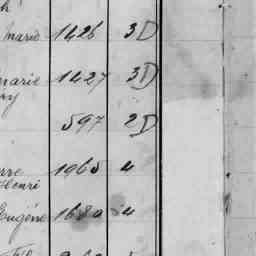 Marie 1426 3D
Marie 1427 3D
ry
597 2D
rre 1965 4
Henri
Eugène 1680 4